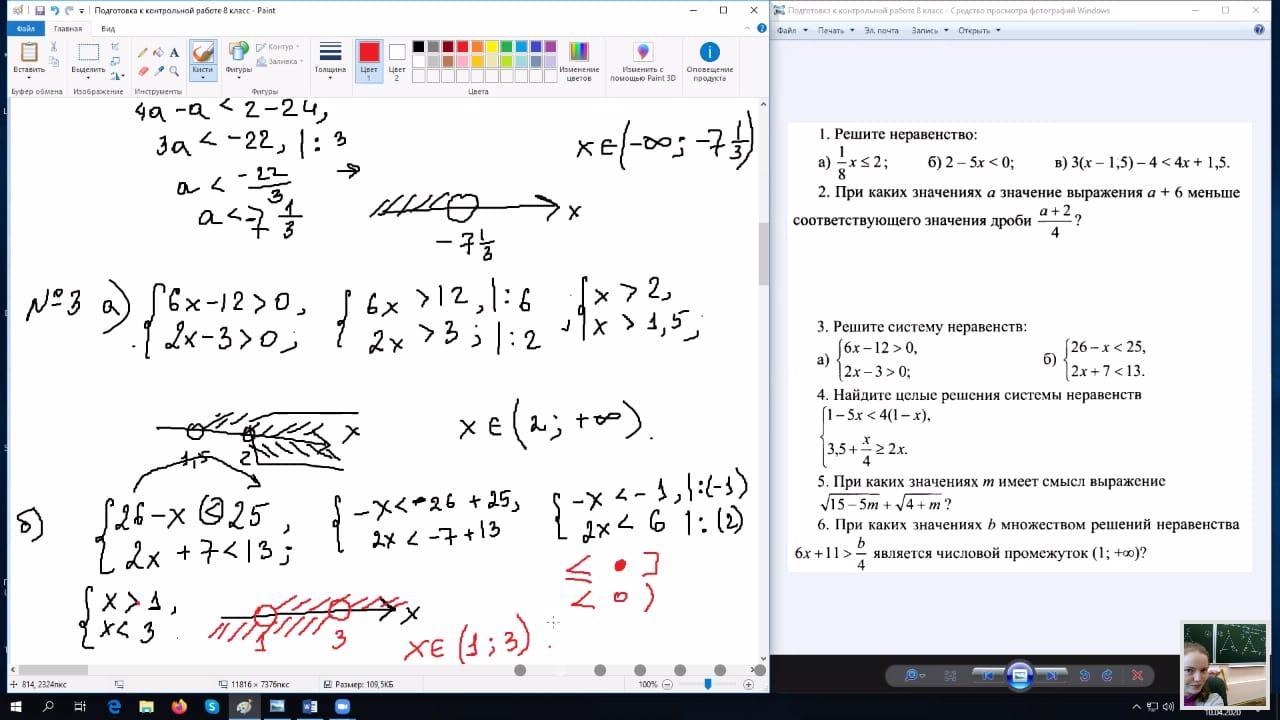 Подготовка к контрольной работе 8 класс - Paint
Файл Главная Вид
Вставить
Выделить
Кисти
Фигуры
Контур
Заливка
Толщина
Цвет 1
Цвет 2
Изменение цветов
Изменить с помощью Paint 3D
Оповещение продукта
Буфер обмена Изображение Инструменты Фигуры Цвета
4a - a < 2 - 24,
3a < -22, | : 3
a < -22/3
a < -7 1/3
x
-7 1/3
x ∈ (-∞; -7 1/3)
№3 а) {6x-12>0, {6x >12, |:6 {x > 2,
{2x-3>0; {2x >3; |:2 , {x > 1,5;
1,5 2 x
x ∈ (2; +∞).
б) {26-x < 25, {-x < -26 + 25, {-x < -1, |:(-1)
{2x + 7 < 13; {2x < -7 + 13 {2x < 6 |:(2)
≤ • ]
< o )
{x > 1,
{x < 3
1 3 x
x ∈ (1; 3).
814, 2324пкс
11816 × 7376пкс
Размер: 109,5КБ
100%
Подготовка к контрольной работе 8 класс - Средство просмотра фотографий Windows
Файл Печать Эл. почта Запись Открыть
1. Решите неравенство:
а) 1/8 x ≤ 2; б) 2 – 5x < 0; в) 3(x – 1,5) – 4 < 4x + 1,5.
2. При каких значениях a значение выражения a + 6 меньше
соответствующего значения дроби (a + 2)/4?
3. Решите систему неравенств:
а) {6x – 12 > 0, б) {26 – x < 25,
{2x – 3 > 0; {2x + 7 < 13.
4. Найдите целые решения системы неравенств
{1 – 5x < 4(1 – x),
{3,5 + x/4 ≥ 2x.
5. При каких значениях m имеет смысл выражение
√(15 – 5m) + √(4 + m) ?
6. При каких значениях b множеством решений неравенства
6x + 11 > b/4 является числовой промежуток (1; +∞)?
10.04.2020